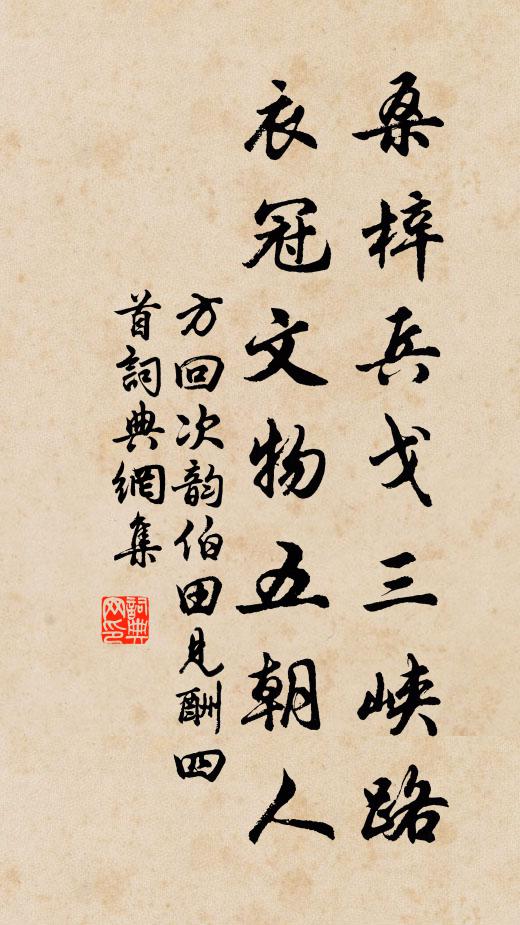 桑梓兵戈三峡路
衣冠文物五朝人
方回次韵伯田見酬四
首詞典網集
詞典网印